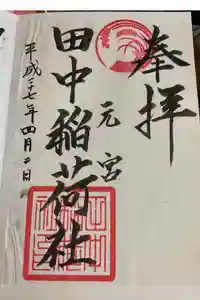 奉拝
元宮
田中稲荷社
平成二十七年四月二日